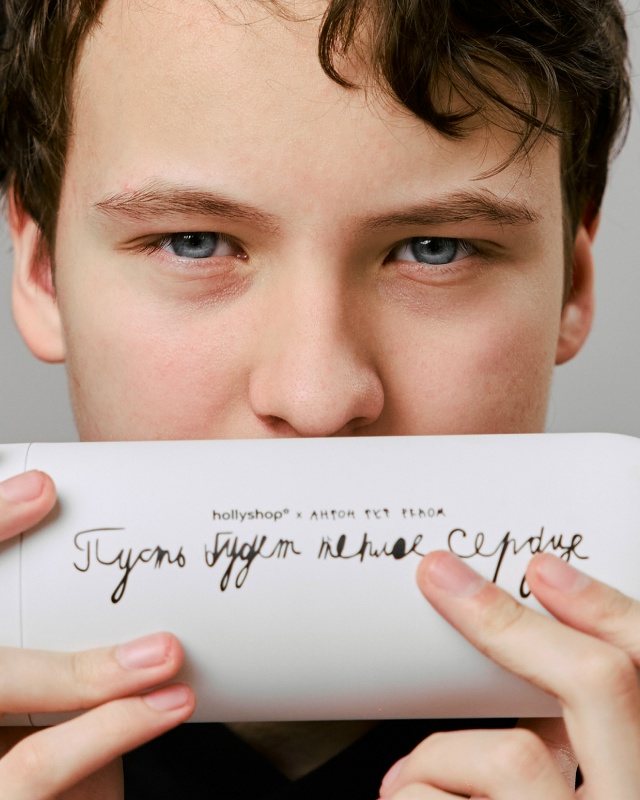 hollyshop® × АНТОН ТУТ РЯДОМ
Пусть будет теплое Сердце